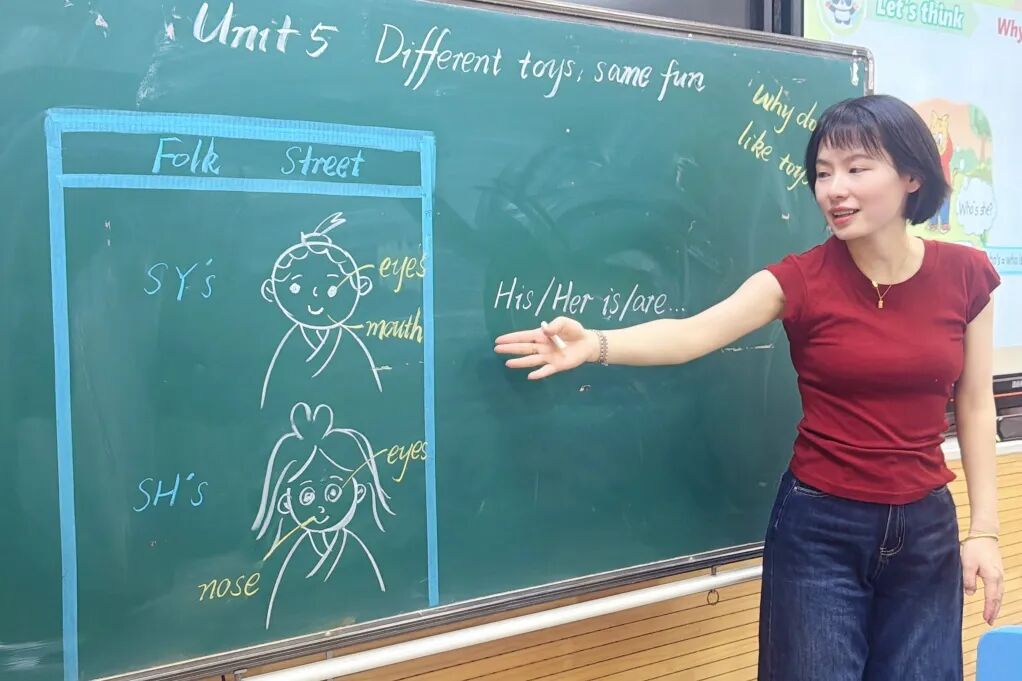 Unit 5 Different toys, same fun
Folk Street
SY's
eyes
mouth
SH's
eyes
nose
His/Her is/are...
Why do
like toys
Let's think
Why
Who's she?